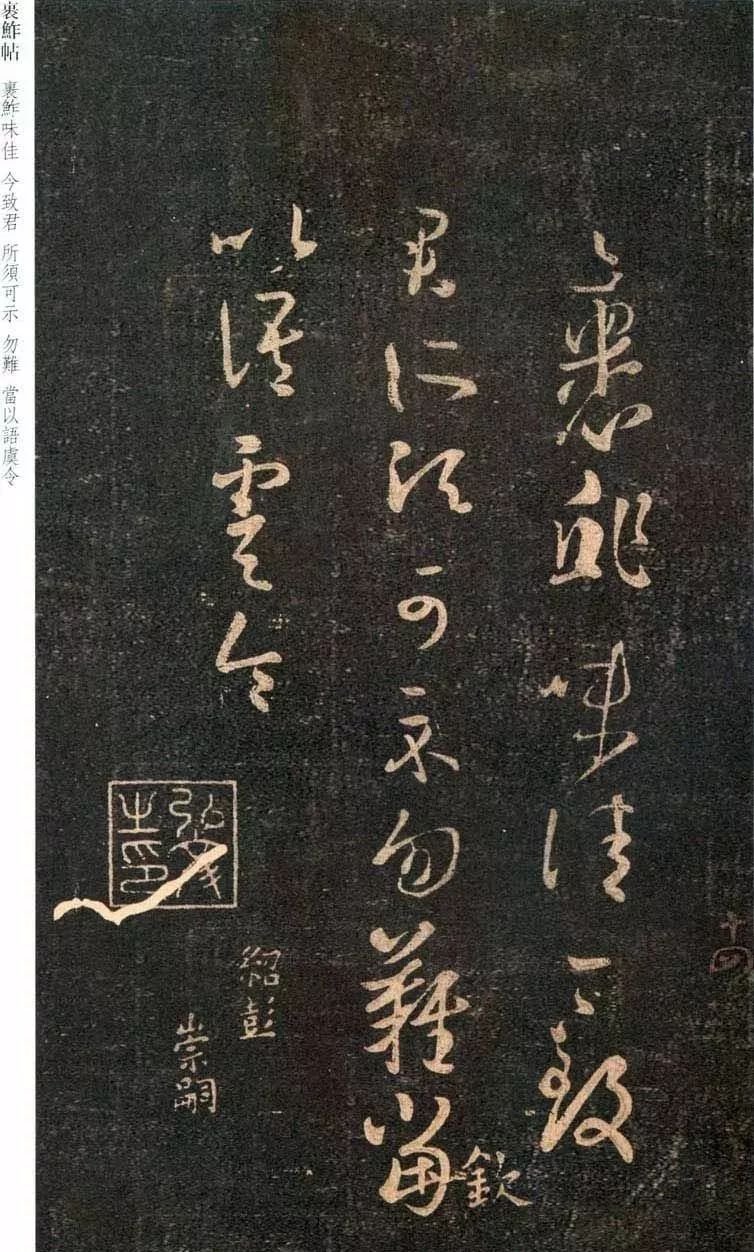 十四
裹鮓味佳今致
君所須可示勿難當
欽
以語虞令
弘文之印
紹彭
崇嗣
裹鮓帖 裹鮓味佳 今致君 所須可示 勿難 當以語虞令